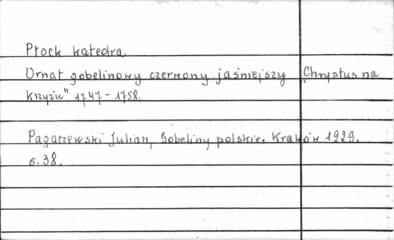 Płock katedra
Ornat gobelinowy czerwony jaśniejszy "Chrystus na
krzyżu" 1747-1758.
Pagaczewski Julian, Gobeliny polskie. Kraków 1929.
s. 38.